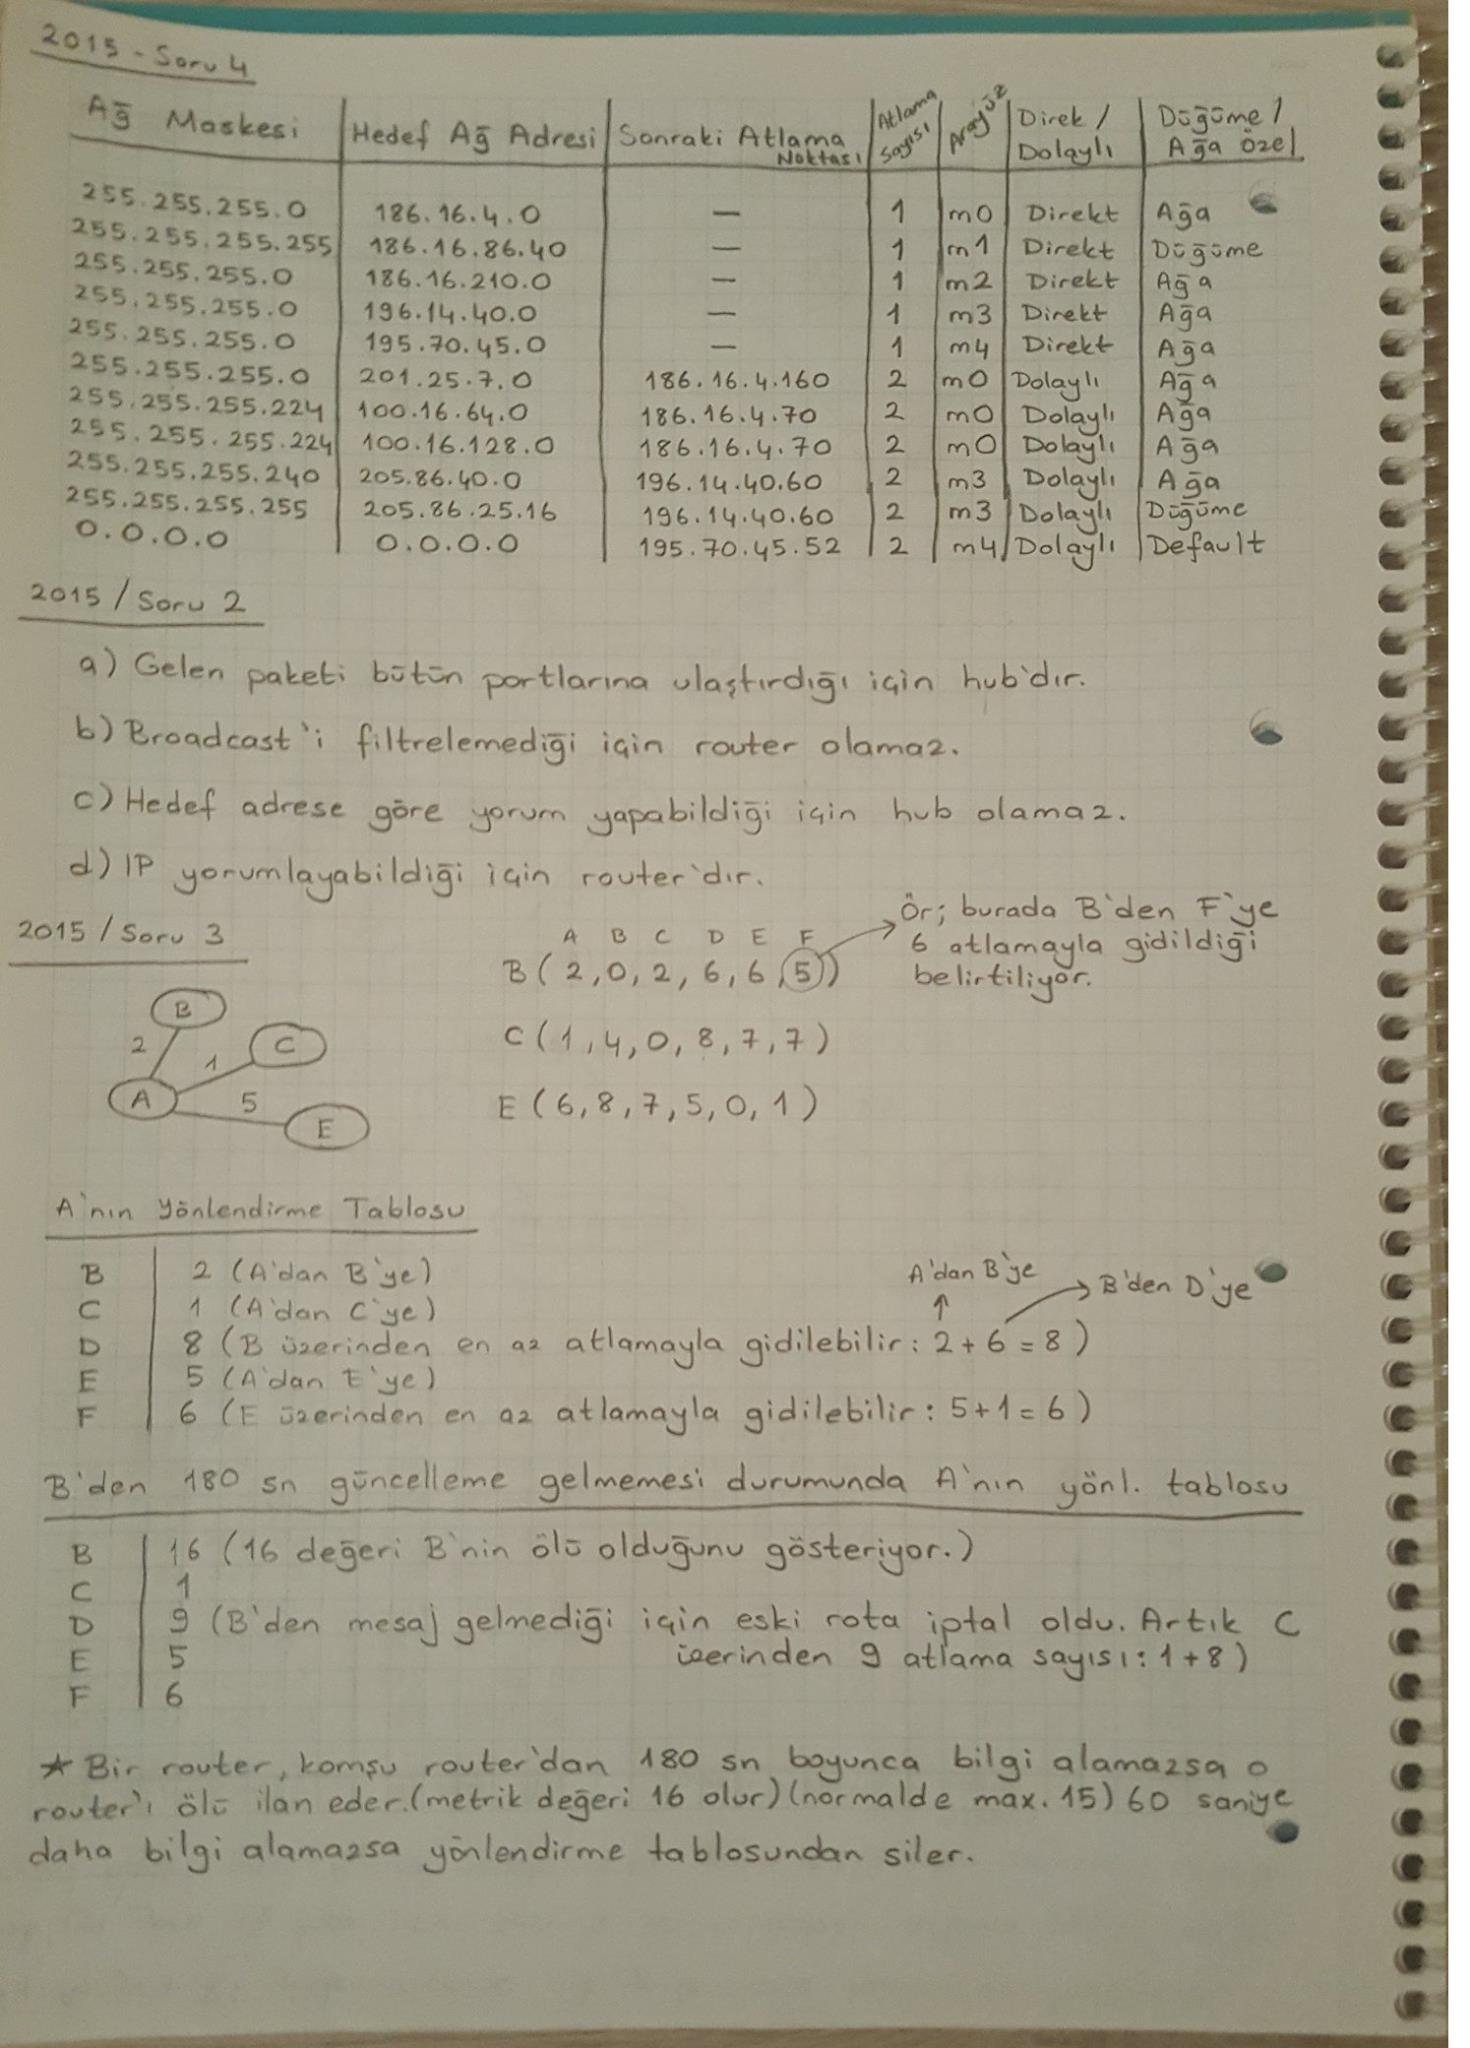 2015 - Soru 4
Ağ Maskesi | Hedef Ağ Adresi | Sonraki Atlama Noktası | Atlama Sayısı | Arayüz | Direk / Dolaylı | Düğüme / Ağa özel
255.255.255.0 | 186.16.4.0 | — | 1 | m0 | Direkt | Ağa
255.255.255.255 | 186.16.86.40 | — | 1 | m1 | Direkt | Düğüme
255.255.255.0 | 186.16.210.0 | — | 1 | m2 | Direkt | Ağa
255.255.255.0 | 196.14.40.0 | — | 1 | m3 | Direkt | Ağa
255.255.255.0 | 195.70.45.0 | — | 1 | m4 | Direkt | Ağa
255.255.255.0 | 201.25.7.0 | 186.16.4.160 | 2 | m0 | Dolaylı | Ağa
255.255.255.224 | 100.16.64.0 | 186.16.4.70 | 2 | m0 | Dolaylı | Ağa
255.255.255.224 | 100.16.128.0 | 186.16.4.70 | 2 | m0 | Dolaylı | Ağa
255.255.255.240 | 205.86.40.0 | 196.14.40.60 | 2 | m3 | Dolaylı | Ağa
255.255.255.255 | 205.86.25.16 | 196.14.40.60 | 2 | m3 | Dolaylı | Düğüme
0.0.0.0 | 0.0.0.0 | 195.70.45.52 | 2 | m4 | Dolaylı | Default
2015 / Soru 2
a) Gelen paketi bütün portlarına ulaştırdığı için hub'dır.
b) Broadcast'i filtrelemediği için router olamaz.
c) Hedef adrese göre yorum yapabildiği için hub olamaz.
d) IP yorumlayabildiği için router'dır.
2015 / Soru 3
A B C D E F
B ( 2, 0, 2, 6, 6, 5 )
Ör; burada B'den F'ye
6 atlamayla gidildiği
belirtiliyor.
C ( 1, 4, 0, 8, 7, 7 )
E ( 6, 8, 7, 5, 0, 1 )
B
2
C
1
A
5
E
A'nın Yönlendirme Tablosu
B | 2 (A'dan B'ye)
C | 1 (A'dan C'ye)
A'dan B'ye
B'den D'ye
D | 8 (B üzerinden en az atlamayla gidilebilir : 2 + 6 = 8 )
E | 5 (A'dan E'ye)
F | 6 (E üzerinden en az atlamayla gidilebilir : 5 + 1 = 6 )
B'den 180 sn güncelleme gelmemesi durumunda A'nın yönl. tablosu
B | 16 (16 değeri B'nin ölü olduğunu gösteriyor.)
C | 1
D | 9 (B'den mesaj gelmediği için eski rota iptal oldu. Artık C
üzerinden 9 atlama sayısı : 1 + 8 )
E | 5
F | 6
★ Bir router, komşu router'dan 180 sn boyunca bilgi alamazsa o
router'ı ölü ilan eder. (metrik değeri 16 olur) (normalde max. 15) 60 saniye
daha bilgi alamazsa yönlendirme tablosundan siler.